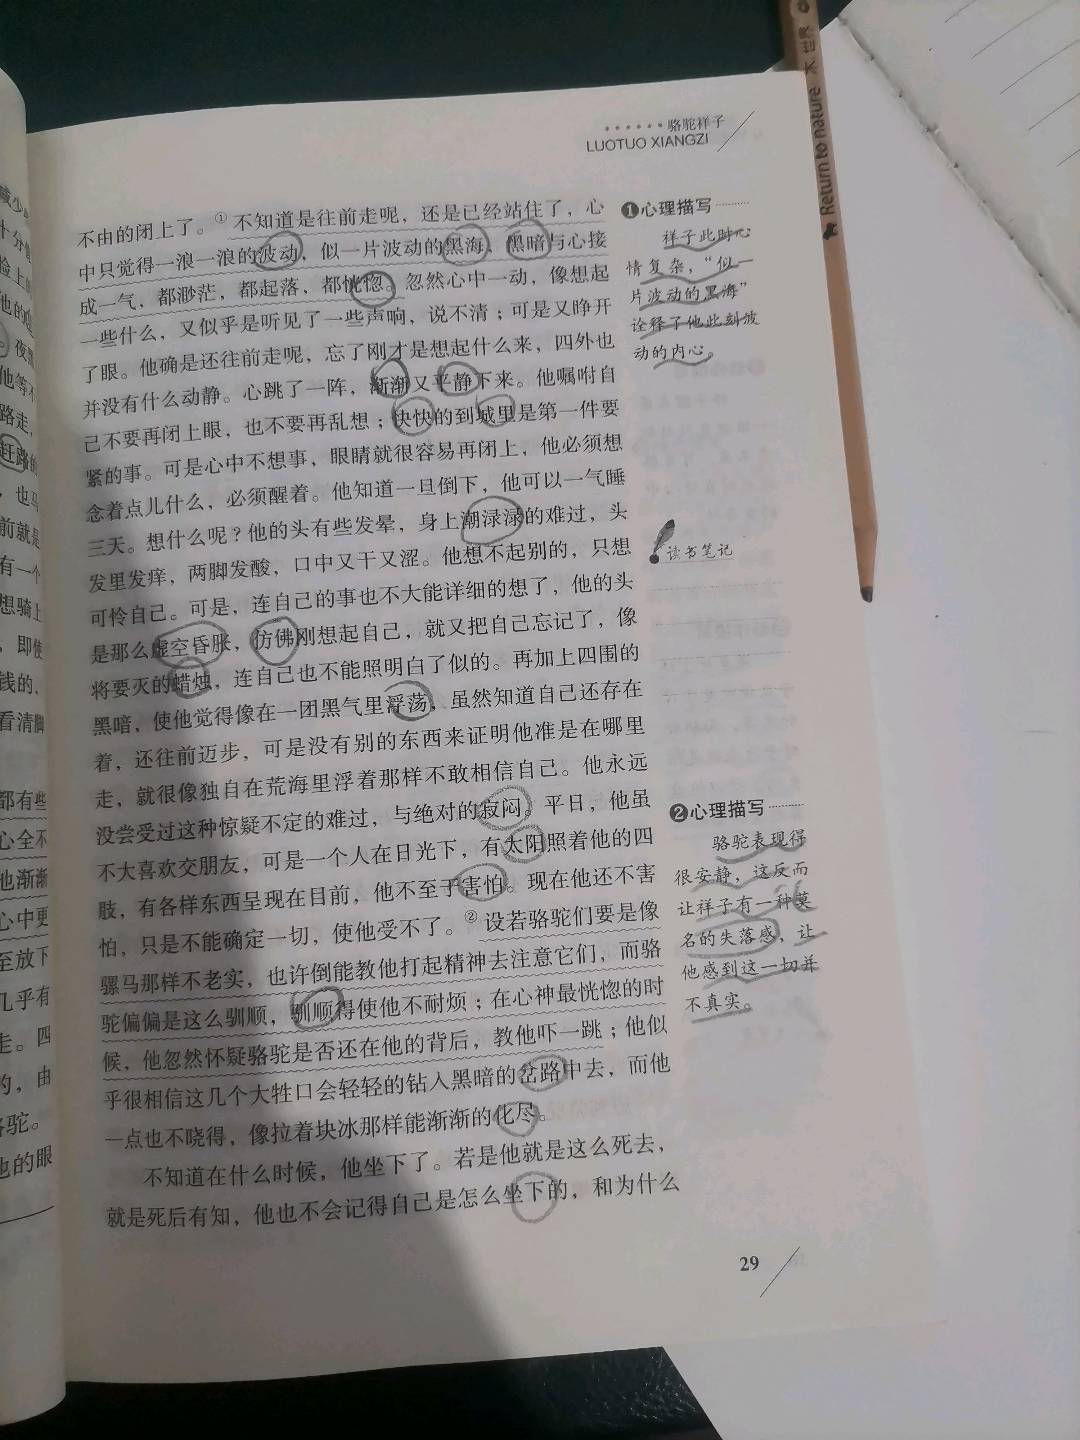 骆驼祥子
LUOTUO XIANGZI
不由的闭上了。①不知道是往前走呢，还是已经站住了，心
中只觉得一浪一浪的波动，似一片波动的黑海，黑暗与心接
成一气，都渺茫，都起落，都恍惚。忽然心中一动，像想起
一些什么，又似乎是听见了一些声响，说不清；可是又睁开
了眼。他确是还往前走呢，忘了刚才是想起什么来，四外也
并没有什么动静。心跳了一阵，渐渐又平静下来。他嘱咐自
己不要再闭上眼，也不要再乱想；快快的到城里是第一件要
紧的事。可是心中不想事，眼睛就很容易再闭上，他必须想
念着点儿什么，必须醒着。他知道一旦倒下，他可以一气睡
三天。想什么呢？他的头有些发晕，身上潮渌渌的难过，头
发里发痒，两脚发酸，口中又干又涩。他想不起别的，只想
可怜自己。可是，连自己的事也不大能详细的想了，他的头
是那么虚空昏胀，仿佛刚想起自己，就又把自己忘记了，像
将要灭的蜡烛，连自己也不能照明白了似的。再加上四围的
黑暗，使他觉得像在一团黑气里浮荡，虽然知道自己还存在
着，还往前迈步，可是没有别的东西来证明他准是在哪里
走，就很像独自在荒海里浮着那样不敢相信自己。他永远
没尝受过这种惊疑不定的难过，与绝对的寂闷。平日，他虽
不大喜欢交朋友，可是一个人在日光下，有太阳照着他的四
肢，有各样东西呈现在目前，他不至于害怕。现在他还不害
怕，只是不能确定一切，使他受不了。②设若骆驼们要是像
骡马那样不老实，也许倒能教他打起精神去注意它们，而骆
驼偏偏是这么驯顺，驯顺得使他不耐烦；在心神最恍惚的时
候，他忽然怀疑骆驼是否还在他的背后，教他吓一跳；他似
乎很相信这几个大牲口会轻轻的钻入黑暗的岔路中去，而他
一点也不晓得，像拉着块冰那样能渐渐的化尽。
不知道在什么时候，他坐下了。若是他就是这么死去，
就是死后有知，他也不会记得自己是怎么坐下的，和为什么
❶心理描写
祥子此时心
情复杂，“似一
片波动的黑海”
诠释了他此刻波
动的内心。
读书笔记
❷心理描写
骆驼表现得
很安静，这反而
让祥子有一种莫
名的失落感，让
他感到这一切并
不真实。
29
Return to nature 木世界
减少。
他等不
路走，
赶路的
，也马
前就是
有一个
想骑上
，即使
钱的，
看清脚
都有些
心全不
他渐渐
心中更
至放下
几乎有
走。四
的，由
骆驼。
他的眼